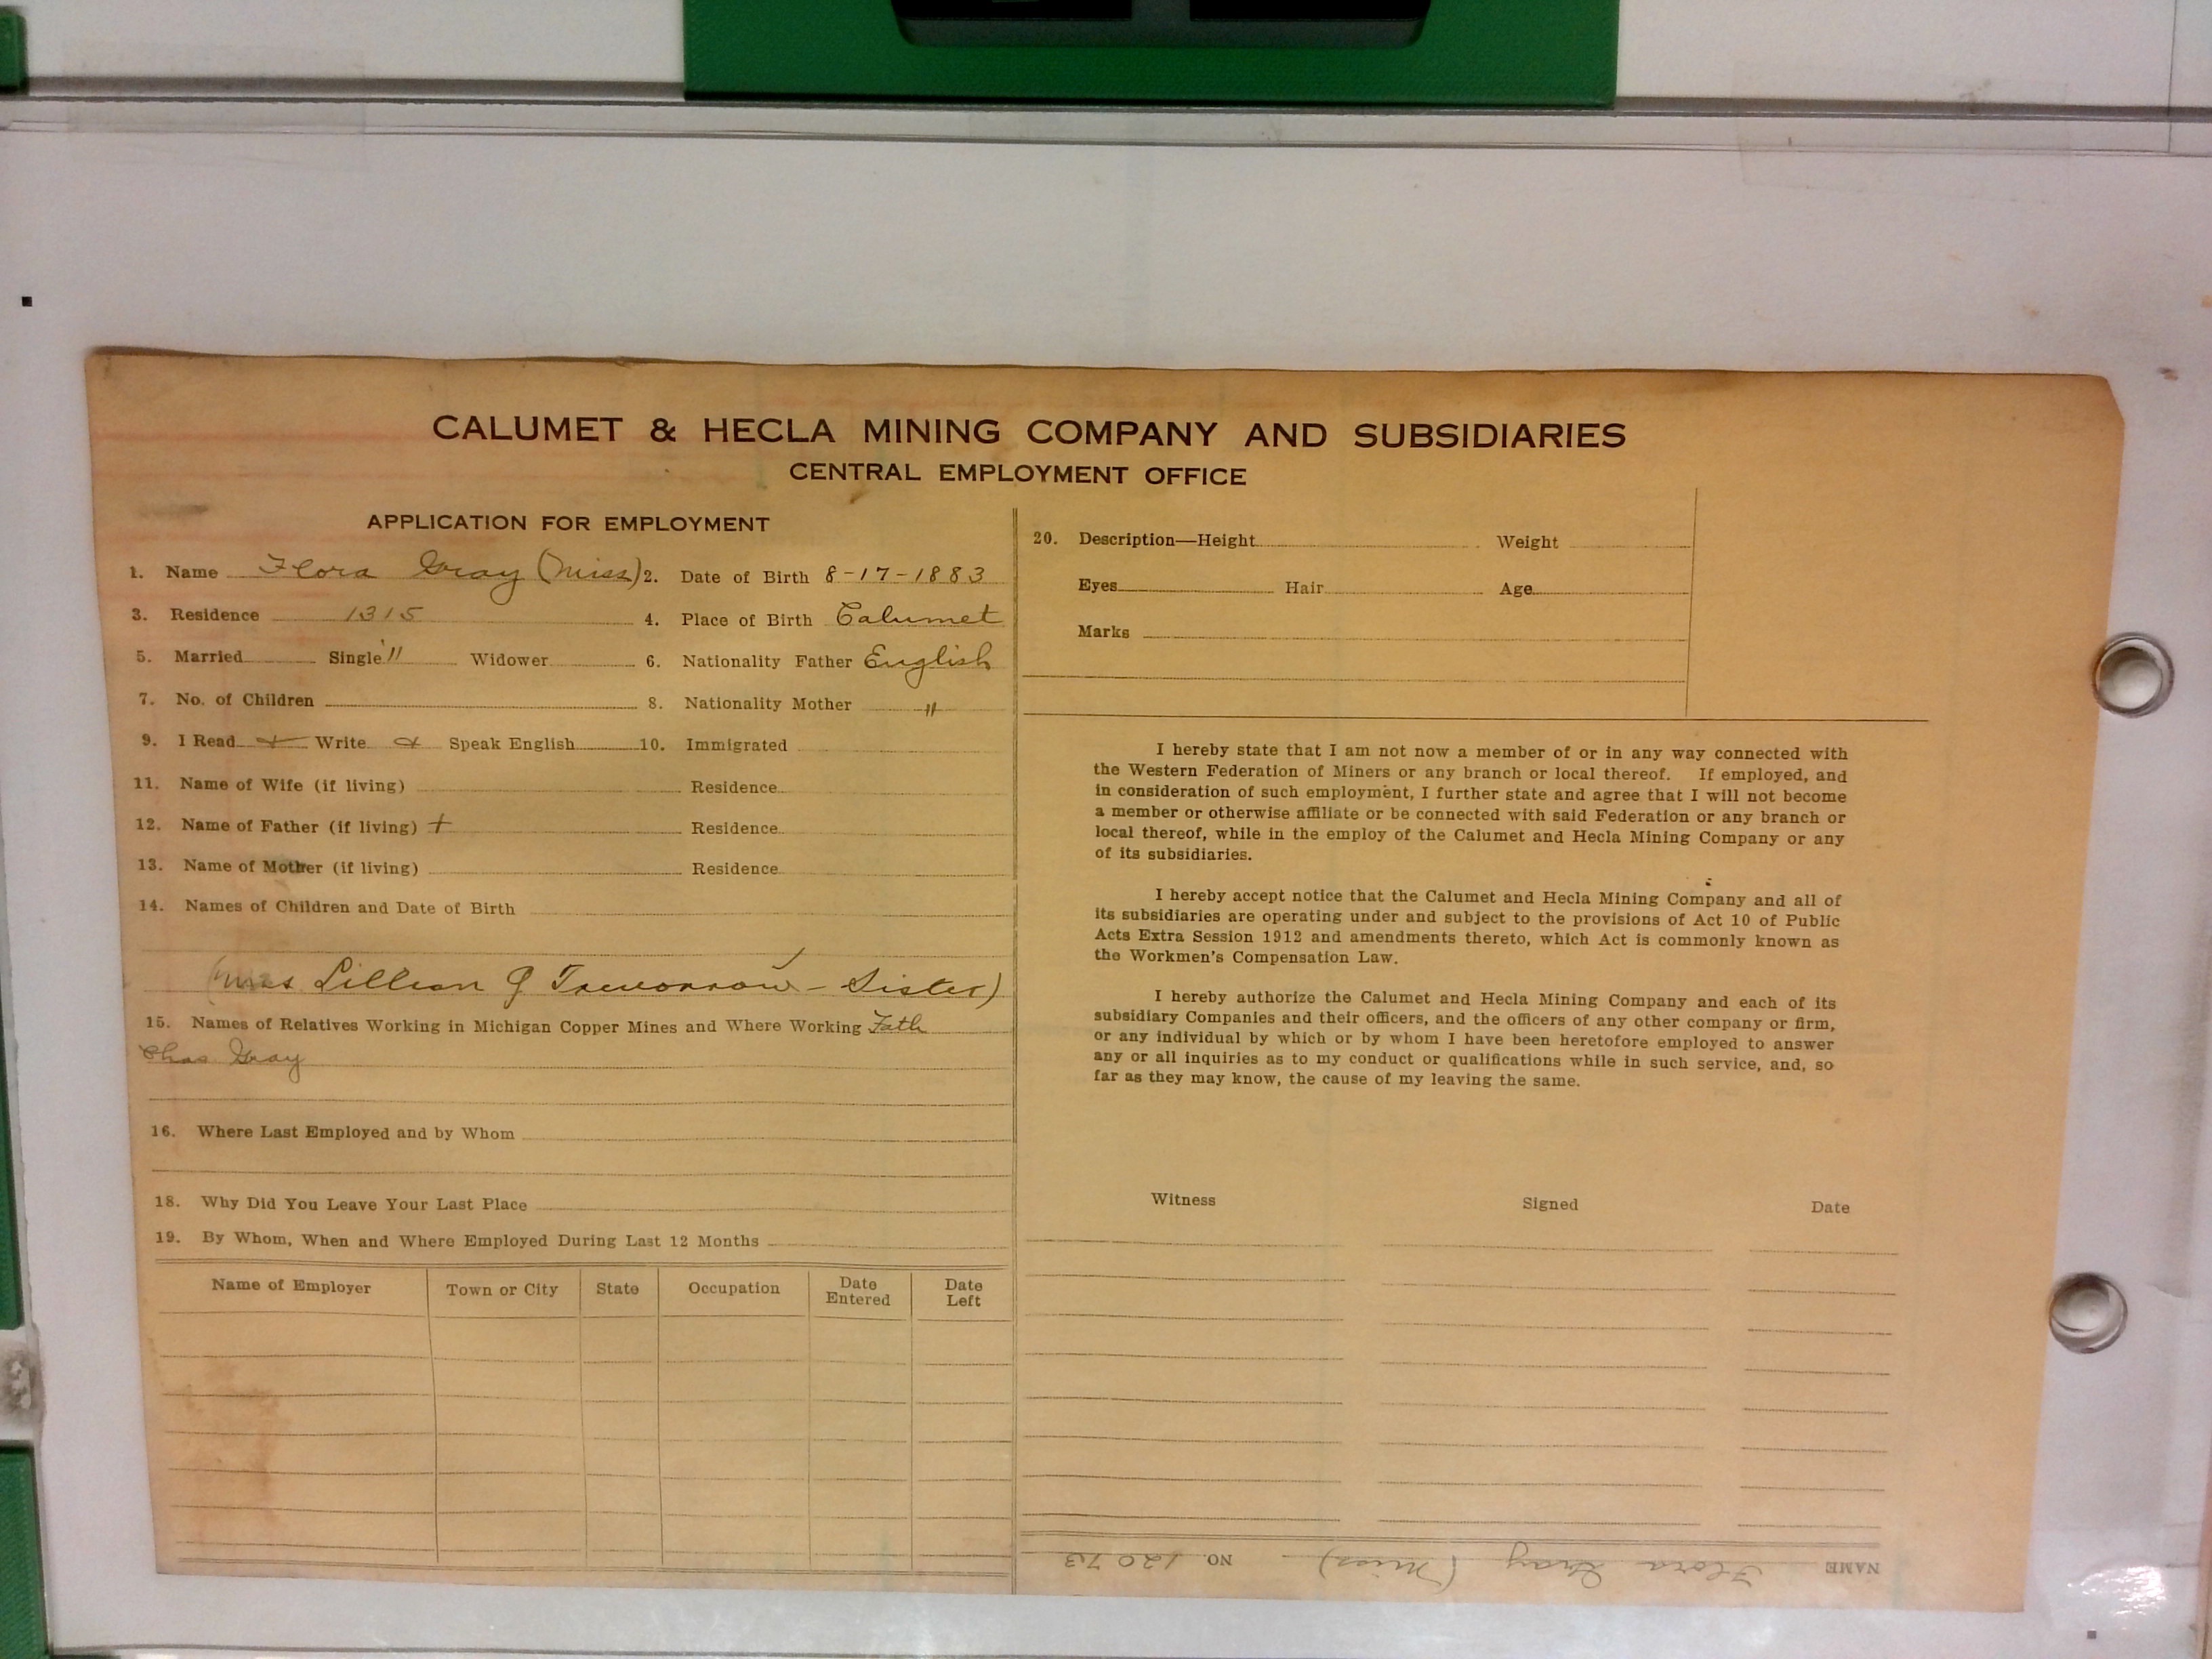 CALUMET & HECLA MINING COMPANY AND SUBSIDIARIES
CENTRAL EMPLOYMENT OFFICE
APPLICATION FOR EMPLOYMENT
1. Name Flora Gray (Miss) 2. Date of Birth 8-17-1883
3. Residence 1315 4. Place of Birth Calumet
5. Married Single " Widower 6. Nationality Father English
7. No. of Children 8. Nationality Mother "
9. I Read Write Speak English 10. Immigrated
11. Name of Wife (if living) Residence
12. Name of Father (if living) + Residence
13. Name of Mother (if living) Residence
14. Names of Children and Date of Birth
(Mrs Lillian G - Sister)
15. Names of Relatives Working in Michigan Copper Mines and Where Working Fath
Chas Gray
16. Where Last Employed and by Whom
18. Why Did You Leave Your Last Place
19. By Whom, When and Where Employed During Last 12 Months
Name of Employer Town or City State Occupation Date Entered Date Left
20. Description—Height Weight
Eyes Hair Age
Marks
I hereby state that I am not now a member of or in any way connected with
the Western Federation of Miners or any branch or local thereof. If employed, and
in consideration of such employment, I further state and agree that I will not become
a member or otherwise affiliate or be connected with said Federation or any branch or
local thereof, while in the employ of the Calumet and Hecla Mining Company or any
of its subsidiaries.
I hereby accept notice that the Calumet and Hecla Mining Company and all of
its subsidiaries are operating under and subject to the provisions of Act 10 of Public
Acts Extra Session 1912 and amendments thereto, which Act is commonly known as
the Workmen's Compensation Law.
I hereby authorize the Calumet and Hecla Mining Company and each of its
subsidiary Companies and their officers, and the officers of any other company or firm,
or any individual by which or by whom I have been heretofore employed to answer
any or all inquiries as to my conduct or qualifications while in such service, and, so
far as they may know, the cause of my leaving the same.
Witness Signed Date
NAME Flora Gray (Miss) NO. 12073